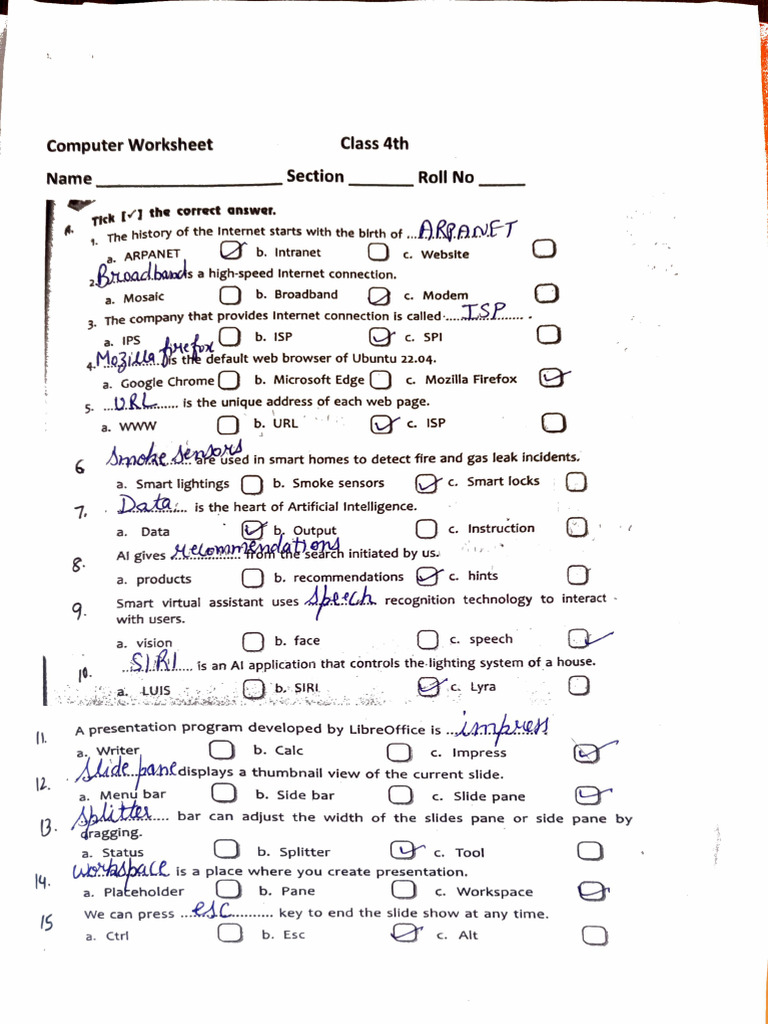 Computer Worksheet Class 4th
Name ____________________ Section _______ Roll No _____
A. Tick [✓] the correct answer.
1. The history of the Internet starts with the birth of ...ARPANET
a. ARPANET ☑ b. Intranet ☐ c. Website ☐
2. Broadband is a high-speed Internet connection.
a. Mosaic ☐ b. Broadband ☑ c. Modem ☐
3. The company that provides Internet connection is called .....ISP...... .
a. IPS ☐ b. ISP ☑ c. SPI ☐
4. Mozilla firefox is the default web browser of Ubuntu 22.04.
a. Google Chrome ☐ b. Microsoft Edge ☐ c. Mozilla Firefox ☑
5. ...URL....... is the unique address of each web page.
a. WWW ☐ b. URL ☑ c. ISP ☐
6 Smoke sensors are used in smart homes to detect fire and gas leak incidents.
a. Smart lightings ☐ b. Smoke sensors ☑ c. Smart locks ☐
7. Data.... is the heart of Artificial Intelligence.
a. Data ☑ b. Output ☐ c. Instruction ☐
8. AI gives recommendations from the search initiated by us.
a. products ☐ b. recommendations ☑ c. hints ☐
9. Smart virtual assistant uses speech recognition technology to interact
with users.
a. vision ☐ b. face ☐ c. speech ☑
10. ...SIRI..... is an AI application that controls the lighting system of a house.
a. LUIS ☐ b. SIRI ☑ c. Lyra ☐
11. A presentation program developed by LibreOffice is ...impress
a. Writer ☐ b. Calc ☐ c. Impress ☑
12. Slide pane displays a thumbnail view of the current slide.
a. Menu bar ☐ b. Side bar ☐ c. Slide pane ☑
13. Splitter.... bar can adjust the width of the slides pane or side pane by
dragging.
a. Status ☐ b. Splitter ☑ c. Tool ☐
14. workspace is a place where you create presentation.
a. Placeholder ☐ b. Pane ☐ c. Workspace ☑
15 We can press ...esc.......... key to end the slide show at any time.
a. Ctrl ☐ b. Esc ☑ c. Alt ☐